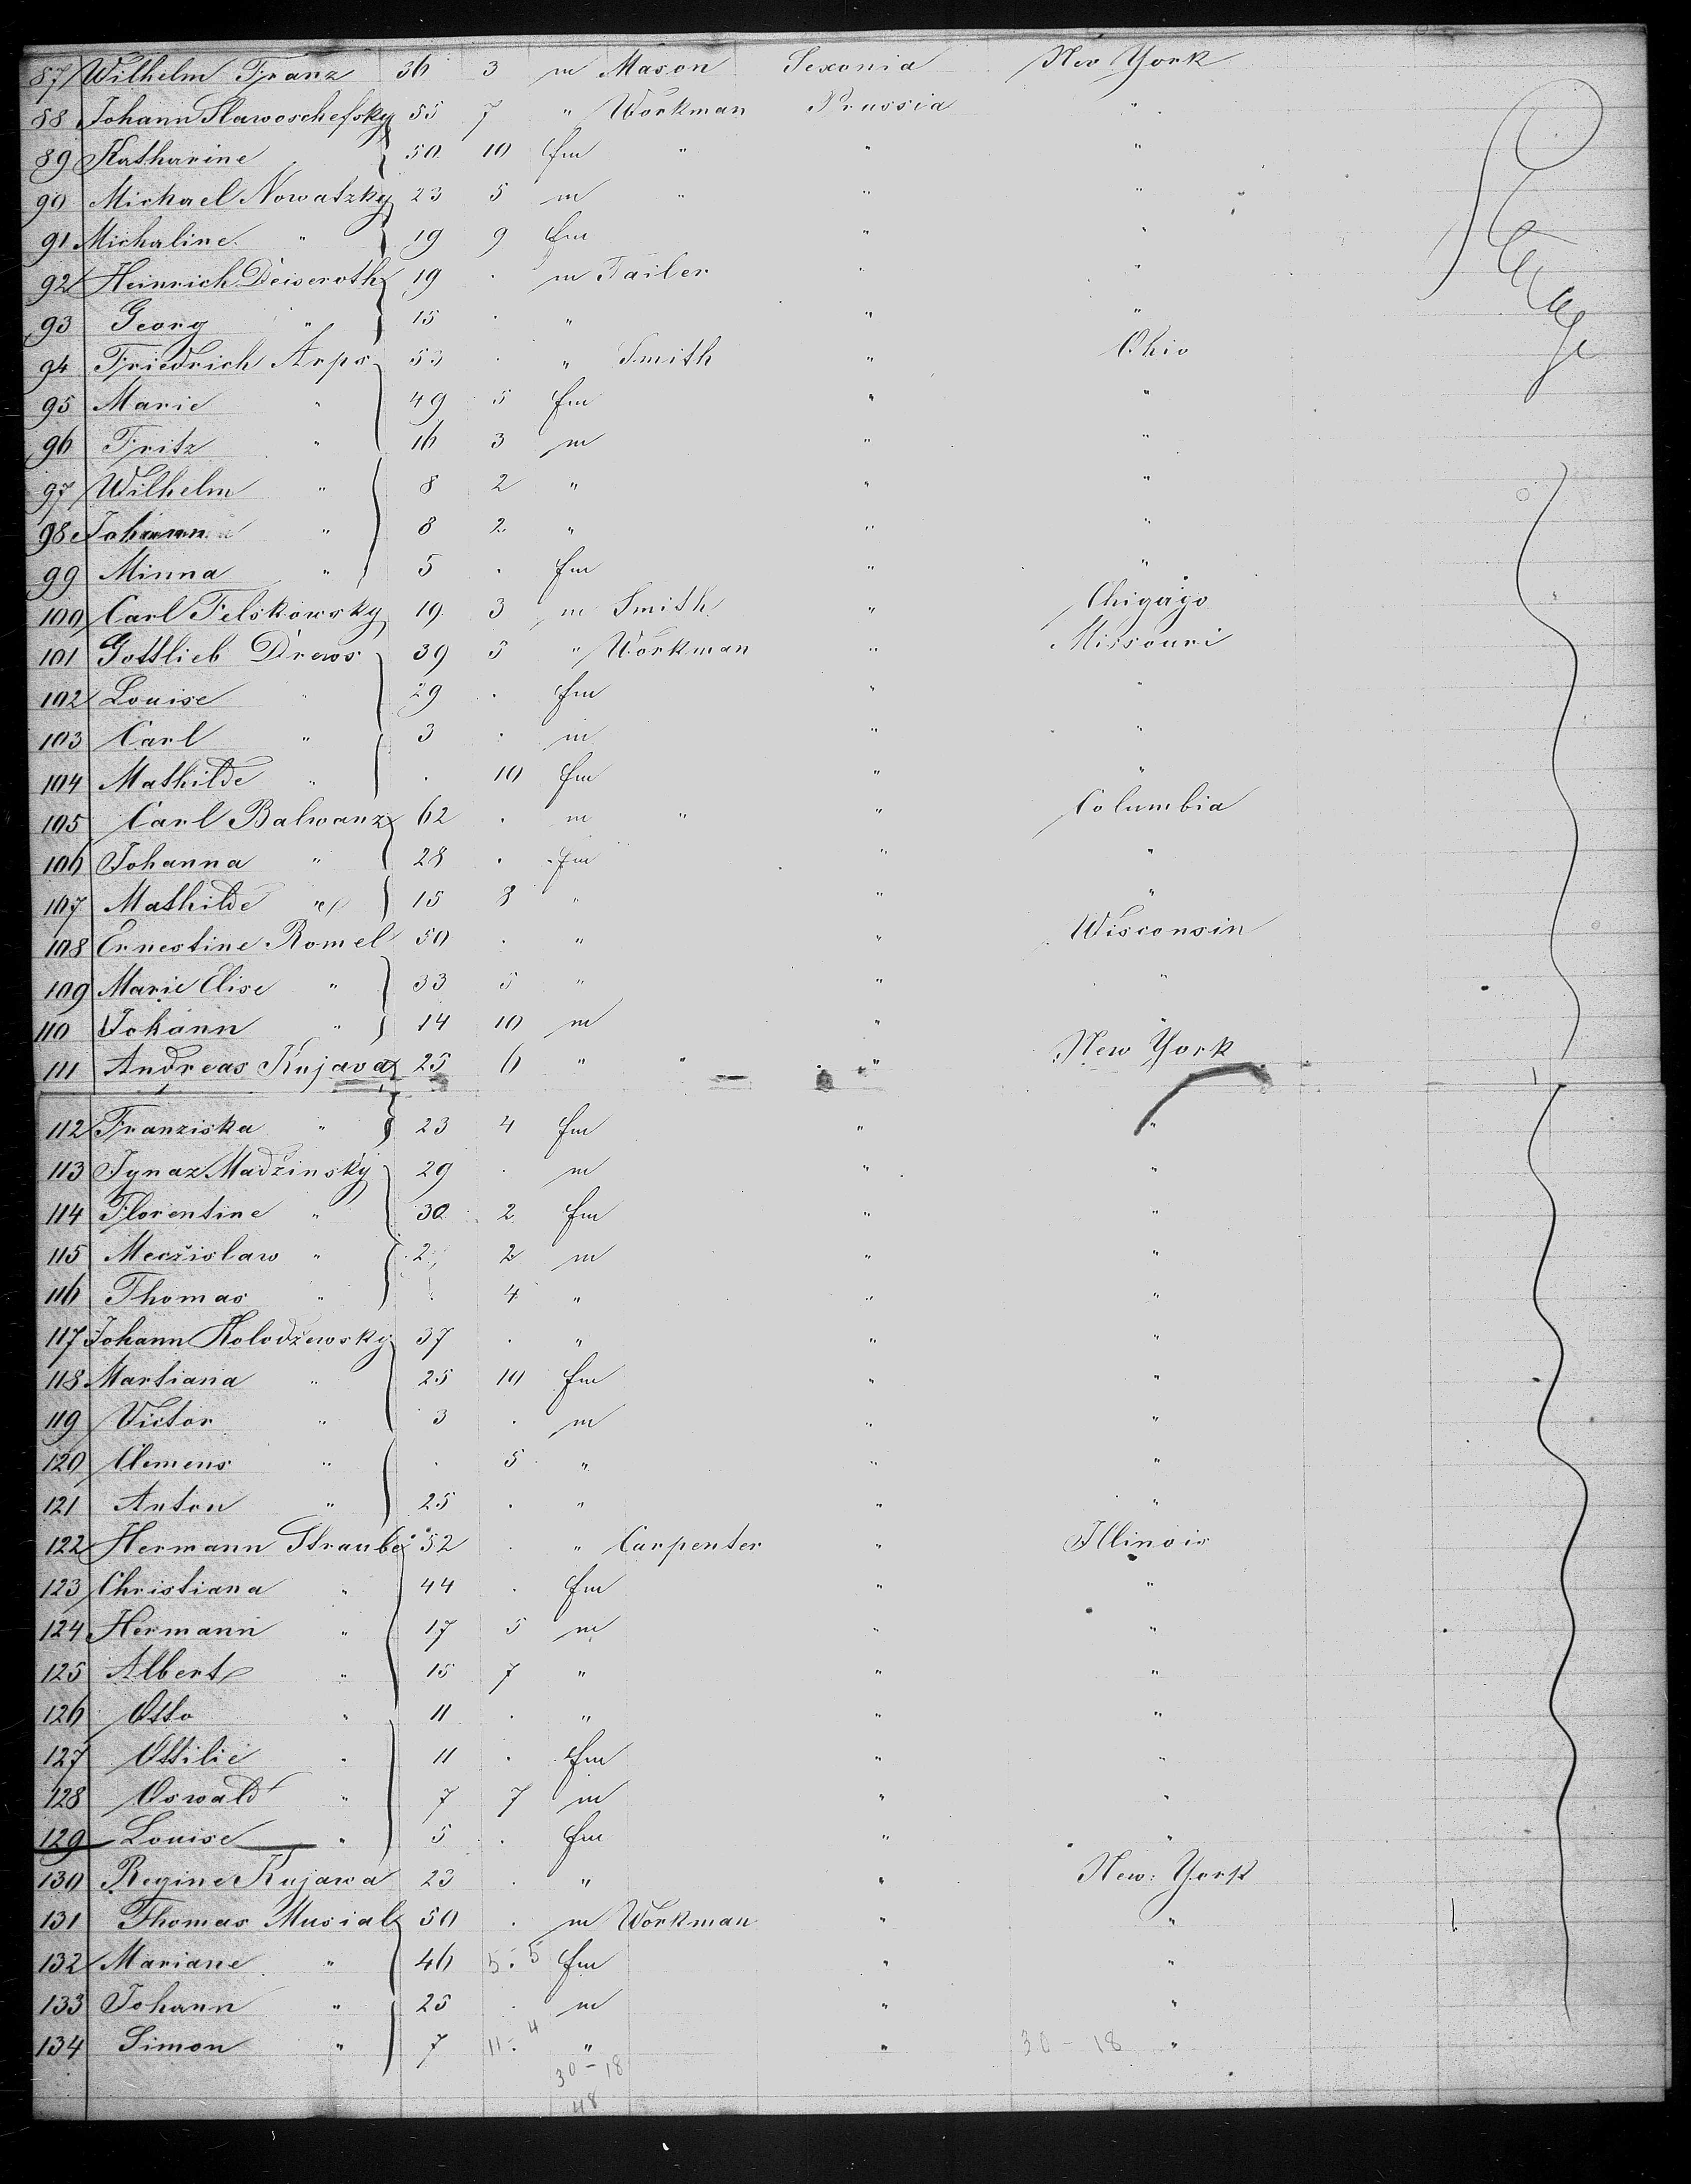 87 Wilhelm Franz 36 3 m Mason Sexonia New York
88 Johann Slawoschefsky 55 7 " Workman Prussia "
89 Katharine " 50 10 fm " " "
90 Michael Nowatzky 23 5 m " " "
91 Michaline " 19 9 fm " "
92 Heinrich Deiseroth 19 . m Tailer " "
93 Georg " 15 . " " "
94 Friedrich Arps 53 . " Smith " Ohio
95 Marie " 49 5 fm " "
96 Fritz " 16 3 m " "
97 Wilhelm " 8 2 " " "
98 Johann " 8 2 " " "
99 Minna " 5 . fm " "
100 Carl Felskowsky 19 3 m Smith " Chigago
101 Gottlieb Drews 39 5 " Workman " Missouri
102 Louise " 29 . fm " "
103 Carl " 3 . m " "
104 Mathilde " . 10 fm " "
105 Carl Balwanz 62 . m " " Columbia
106 Johanna " 28 . fm " "
107 Mathilde " 15 8 " " "
108 Ernestine Romel 50 . " " Wisconsin
109 Marie Elise " 33 5 " " "
110 Johann " 14 10 m " "
111 Andreas Kujava 25 6 " " " New York
112 Franziska " 23 4 fm " "
113 Ignaz Madzinsky 29 . m " "
114 Florentine " 30 2 fm " "
115 Meczislaw " 2 2 m " "
116 Thomas " . 4 " " "
117 Johann Kolodzewsky 37 . " " "
118 Martiana " 25 10 fm " "
119 Victor " 3 . m " "
120 Clemens " . 5 " " "
121 Anton " 25 . " " "
122 Hermann Straube 52 . " Carpenter " Illinois
123 Christiana " 44 . fm " "
124 Hermann " 17 5 m " "
125 Albert " 15 7 " " "
126 Otto " 11 . " " "
127 Ottilie " 11 . fm " "
128 Oswald " 7 7 m " "
129 Louise " 5 . fm " "
130 Regine Kujawa 23 . " " New York
131 Thomas Musial 50 . m Workman " "
132 Mariane " 46 5 . 5 fm " "
133 Johann " 25 . m " "
134 Simon " 7 11 . 4 " " 30 - 18 "
30 - 18
48